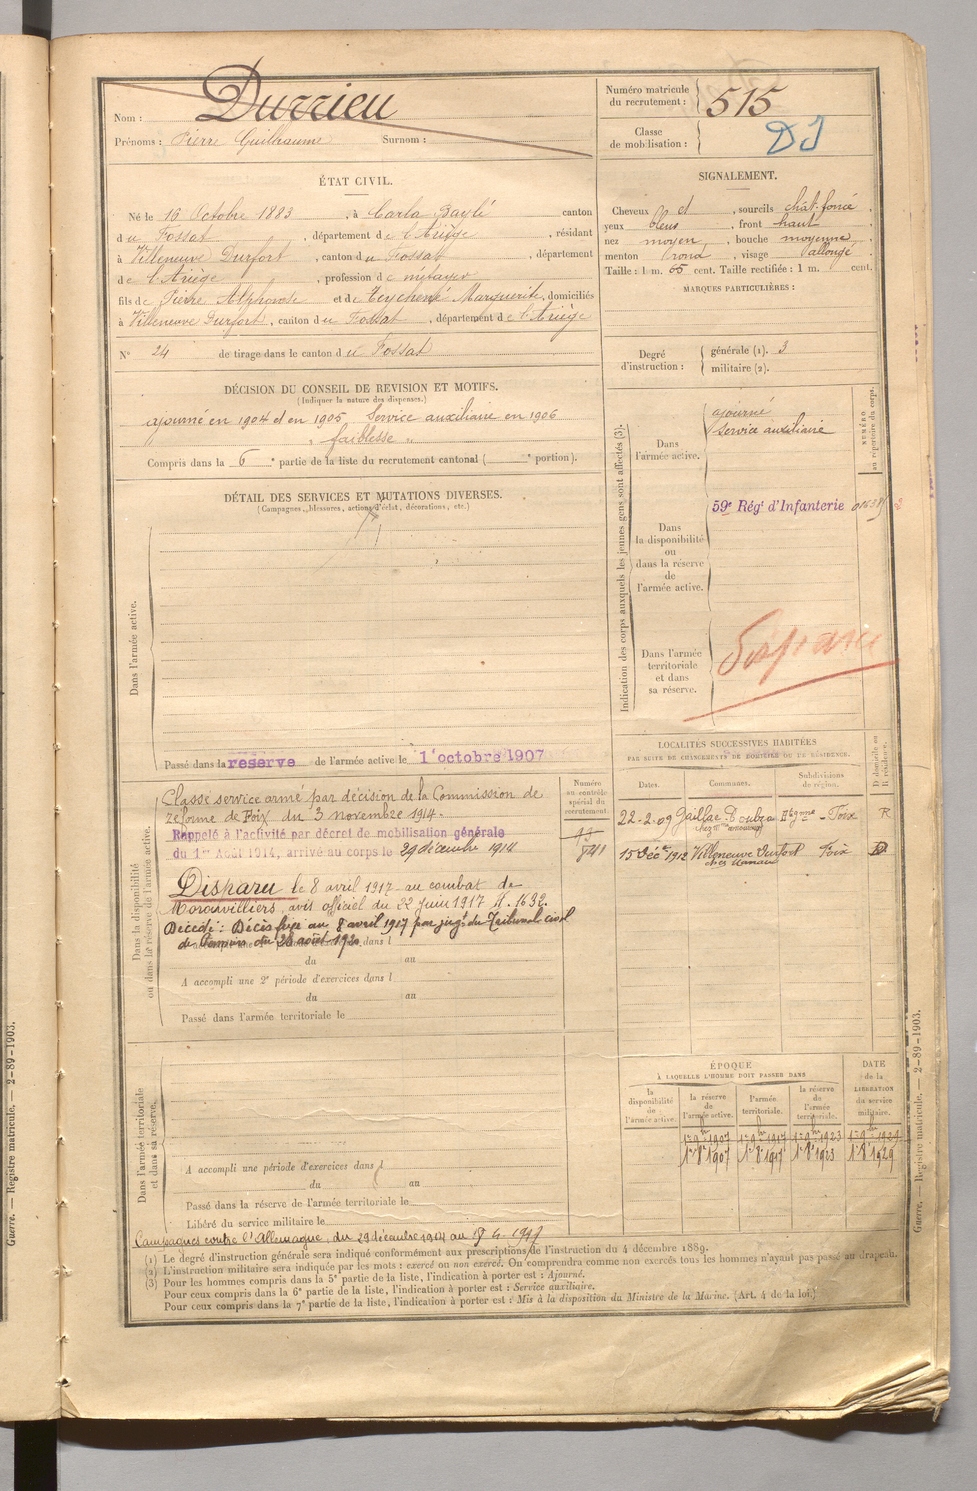 Nom : Durrieu
Prénoms : Pierre Guilhaume Surnom :
Numéro matricule du recrutement : 515
Classe de mobilisation :
ÉTAT CIVIL.
Né le 16 Octobre 1883, à Carla Baylé canton
du Fossat, département de l'Ariège, résidant
à Villeneuve Durfort, canton du Fossat, département
de l'Ariège, profession de métayer
fils de Pierre Alphonse et de Marguerite, domiciliés
à Villeneuve Durfort, canton du Fossat, département de l'Ariège
N° 24 de tirage dans le canton du Fossat
SIGNALEMENT.
Cheveux et, sourcils chât. foncé,
yeux bleus, front haut,
nez moyen, bouche moyenne,
menton rond, visage allongé
Taille : 1 m. 65 cent. Taille rectifiée : 1 m. cent.
MARQUES PARTICULIÈRES :
Degré d'instruction : générale (1). 3
militaire (2).
DÉCISION DU CONSEIL DE REVISION ET MOTIFS.
(Indiquer la nature des dispenses.)
ajourné en 1904 et en 1905 Service auxiliaire en 1906
" faiblesse "
Compris dans la 6e partie de la liste du recrutement cantonal ( e portion).
Indication des corps auxquels les jeunes gens sont affectés (3).
NUMÉRO au répertoire du corps.
Dans l'armée active.
ajourné
Service auxiliaire
Dans la disponibilité ou dans la réserve de l'armée active.
59e Régt d'Infanterie
Dans l'armée territoriale et dans sa réserve.
DÉTAIL DES SERVICES ET MUTATIONS DIVERSES.
(Campagnes, blessures, actions d'éclat, décorations, etc.)
Dans l'armée active.
Passé dans la réserve de l'armée active le 1er octobre 1907
Dans la disponibilité ou dans la réserve de l'armée active.
Classé service armé par décision de la Commission de
réforme de Foix du 3 novembre 1914.
Rappelé à l'activité par décret de mobilisation générale
du 1er Août 1914, arrivé au corps le 29 décembre 1914
Disparu le 8 avril 1917 au combat de
Moronvilliers, avis officiel du 22 Juin 1917 N. 1632.
Décédé : Décès fixé au 8 avril 1917 par jugt du Tribunal civil
de Pamiers du 26 août 1920
dans l
du au
A accompli une 2e période d'exercices dans l
du au
Passé dans l'armée territoriale le
Numéro au contrôle spécial du recrutement
841
LOCALITÉS SUCCESSIVES HABITÉES
PAR SUITE DE CHANGEMENTS DE DOMICILE OU DE RÉSIDENCE.
Dates. Communes. Subdivisions de région. D domicile ou R résidence.
22-2-09 Gailhac-Toulza Foix R
15 Déc. 1912 Villeneuve Durfort Foix D
Dans l'armée territoriale et dans sa réserve.
A accompli une période d'exercices dans l
du au
Passé dans la réserve de l'armée territoriale le
Libéré du service militaire le
ÉPOQUE
À LAQUELLE L'HOMME DOIT PASSER DANS
DATE de la LIBÉRATION du service militaire.
la disponibilité de l'armée active. la réserve de l'armée active. l'armée territoriale. la réserve de l'armée territoriale.
1er 9bre 1907 1er 9bre 1917 1er 9bre 1923 1er 9bre 1929
1er 8 1907 1er 8 1917 1er 8 1923 1er 8 1929
Campagnes contre l'Allemagne, du 29 décembre 1914 au 8 4 1917
(1) Le degré d'instruction générale sera indiqué conformément aux prescriptions de l'instruction du 4 décembre 1889.
(2) L'instruction militaire sera indiquée par les mots : exercé ou non exercé. On comprendra comme non exercés tous les hommes n'ayant pas passé au drapeau.
(3) Pour les hommes compris dans la 5e partie de la liste, l'indication à porter est : Ajourné.
Pour ceux compris dans la 6e partie de la liste, l'indication à porter est : Service auxiliaire.
Pour ceux compris dans la 7e partie de la liste, l'indication à porter est : Mis à la disposition du Ministre de la Marine. (Art. 4 de la loi.)
Guerre. — Registre matricule. — 2-89-1903.
Guerre. — Registre matricule. — 2-89-1903.